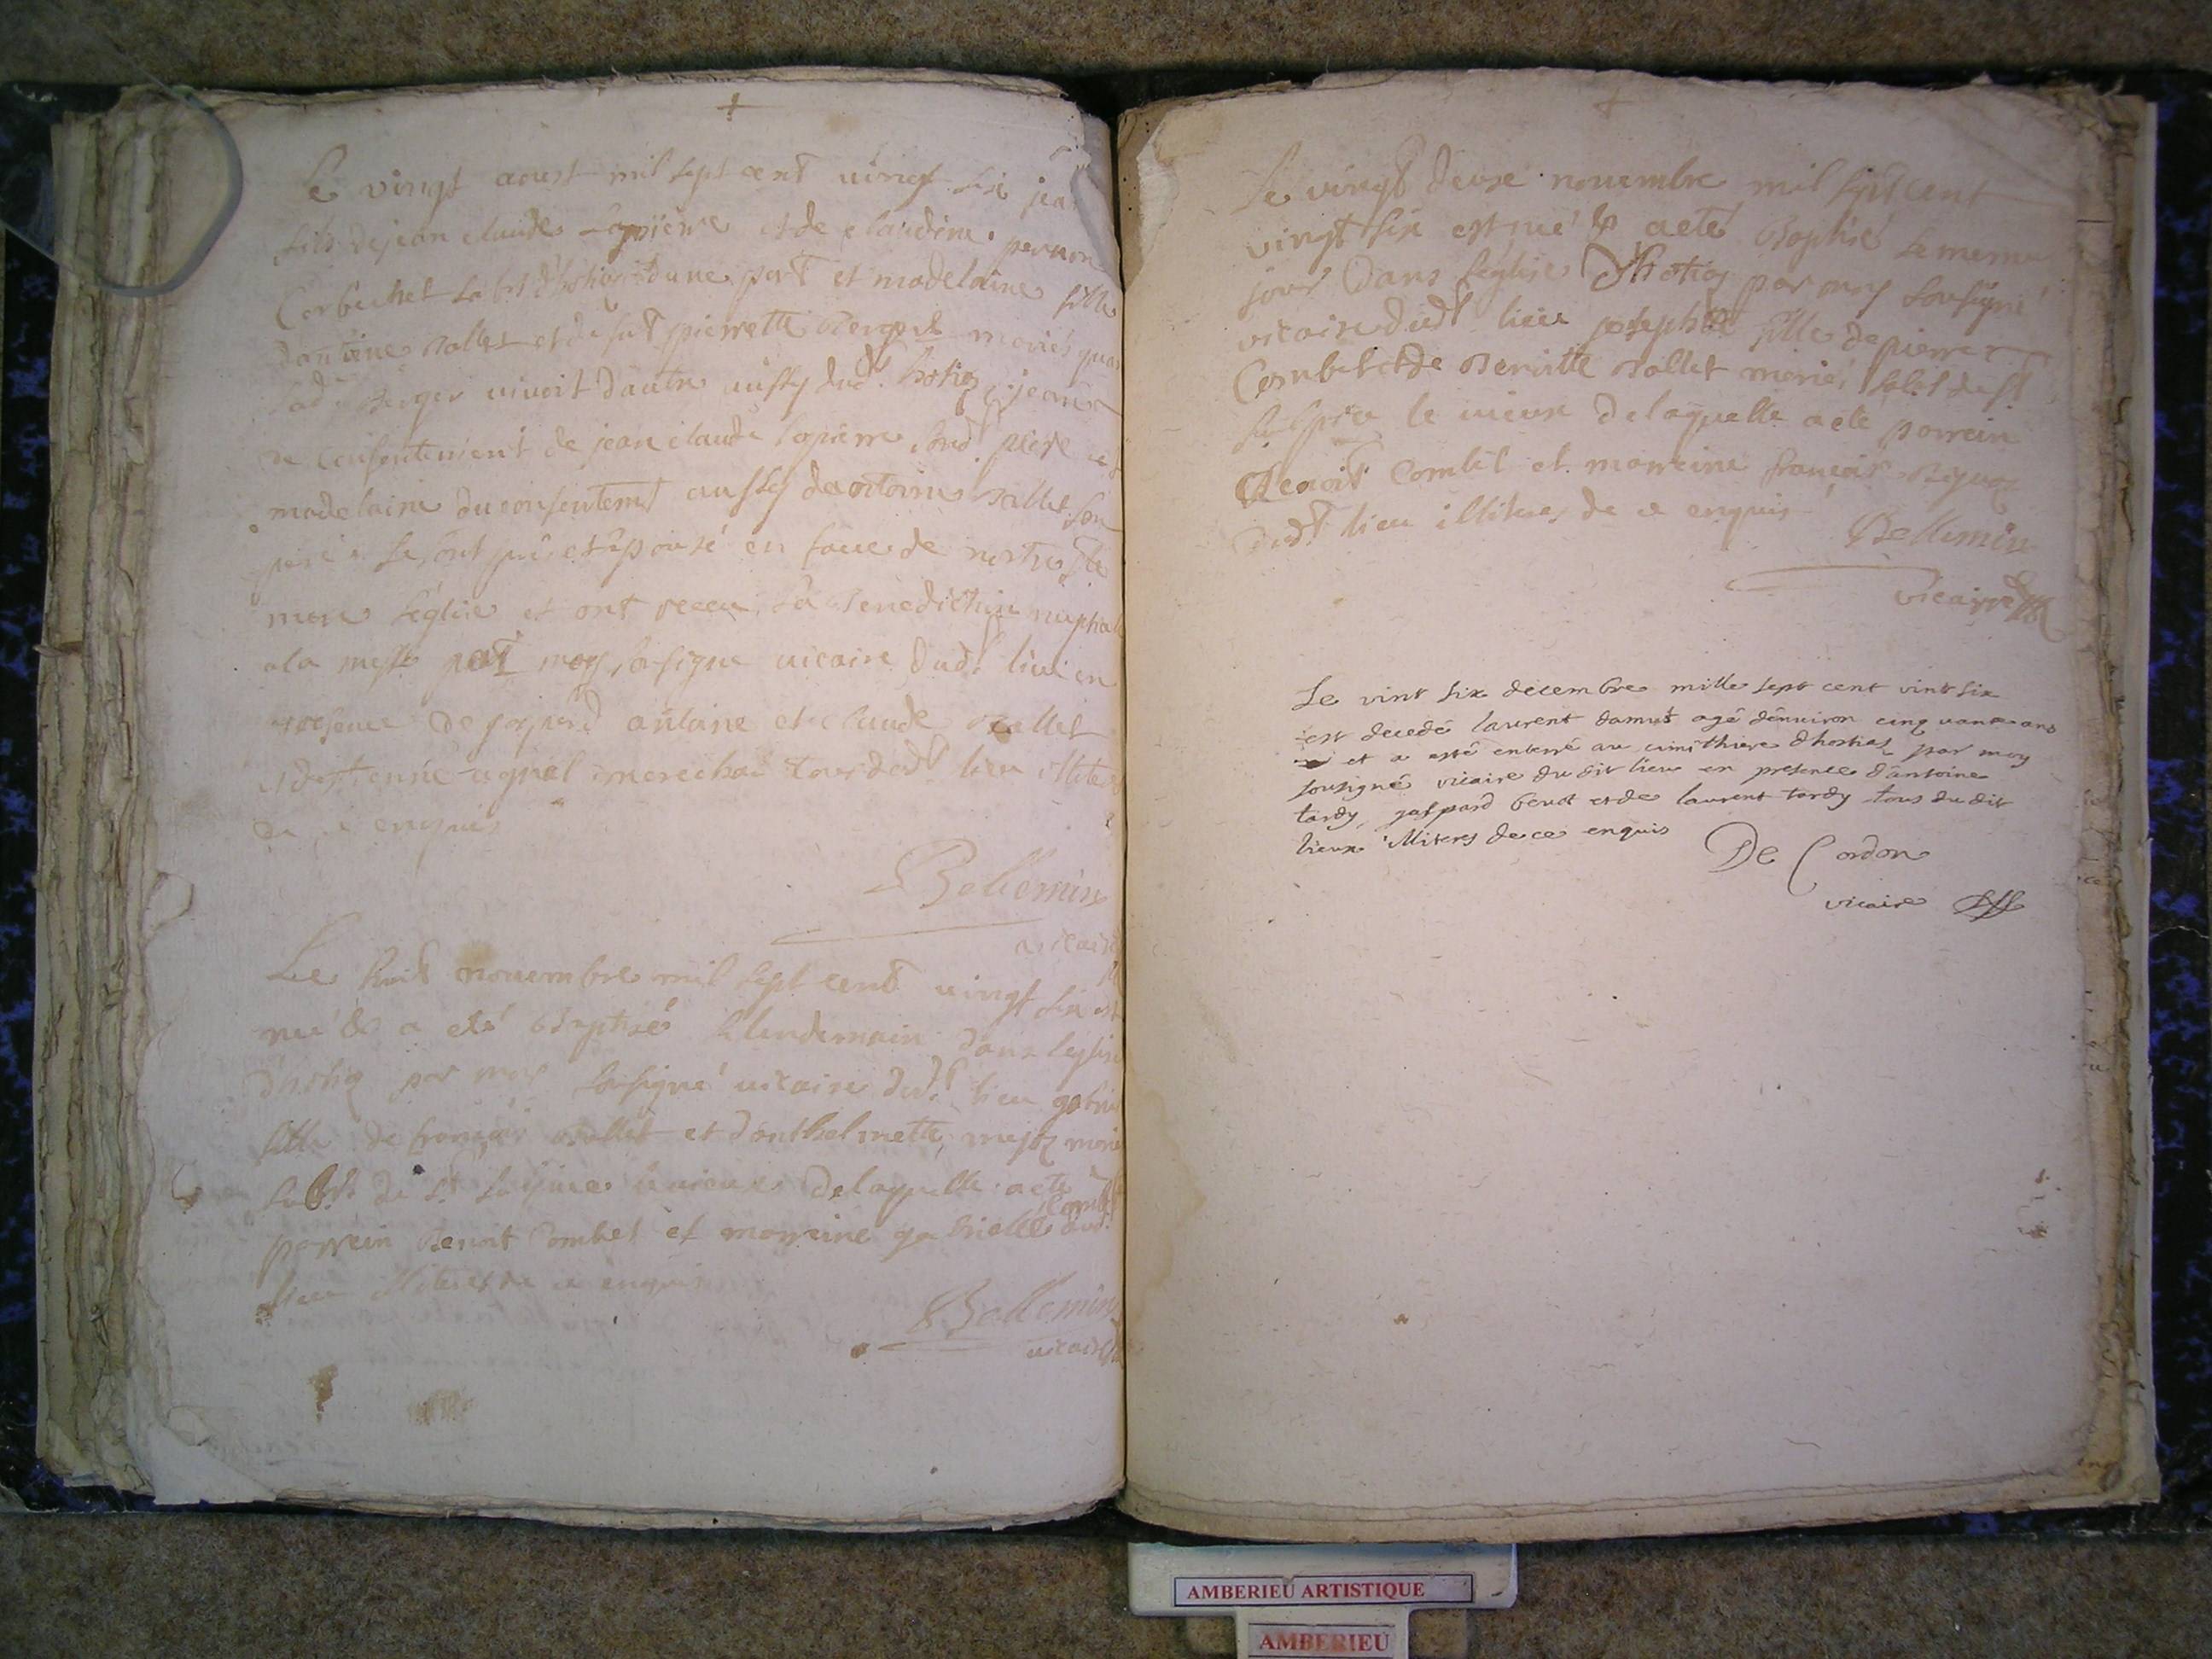 Le vingt aoust mil sept cent vingt six jean
fils de jean claude Lapierre et de claudine pernon
Corbechet d'hostias d'une part et madelaine fille
d'antoine Ballet et de fut pierrette Berger mariés quan
lad Berger vivoit d'autre aussy dud hostias jean
de consentement de jean claude lapierre sond pere et
madelaine du consentemt aussy d'antoine Ballet son
pere se sont pris et épousé en face de nostre ste
mere l'église et ont receu la benediction nuptiale
a la messe par moy sousigne vicaire dudt lieu en
presence de gaspard antoine et claude Ballet
et d'estienne marechal tous dudt lieu illiteres
de ce enquis
Bellemin
vicaire
Le huit novembre mil sept cent vingt six est
née & a eté Baptisé le lendemain dans leglise
d'hostias par moy sousigné vicaire dudt lieu gabrielle
fille de françois Ballet et d'anthelmette mariés
de st Sulpice le vieux de laquelle a eté
parrein Benoit Combet et marreine gabrielle Combet dud
lieu illiteres de ce enquis
Bellemin
vicaire
Le vingt deuxe novembre mil sept cent
vingt six est née & a eté Baptisé le meme
jour dans l'église d'hostias par moy sousigné
vicaire dudt lieu josephte fille de pierre
Combet et de Benoitte Ballet mariés de st
Sulpice le vieux de laquelle a eté parrein
Benoit Combet et marreine françoise
dudt lieu illiteres de ce enquis
Bellemin
vicaire
Le vint six decembre mille sept cent vint six
est decedé laurent damus agé d'environ cinq vante ans
et a esté enterré au cimithiere d'hostias par moy
sousigné vicaire du dit lieu en presence d'antoine
tardy, gaspard benot et de laurent tardy tous du dit
lieux illiteres de ce enquis
De Cordon
vicaire
AMBERIEU ARTISTIQUE
AMBERIEU